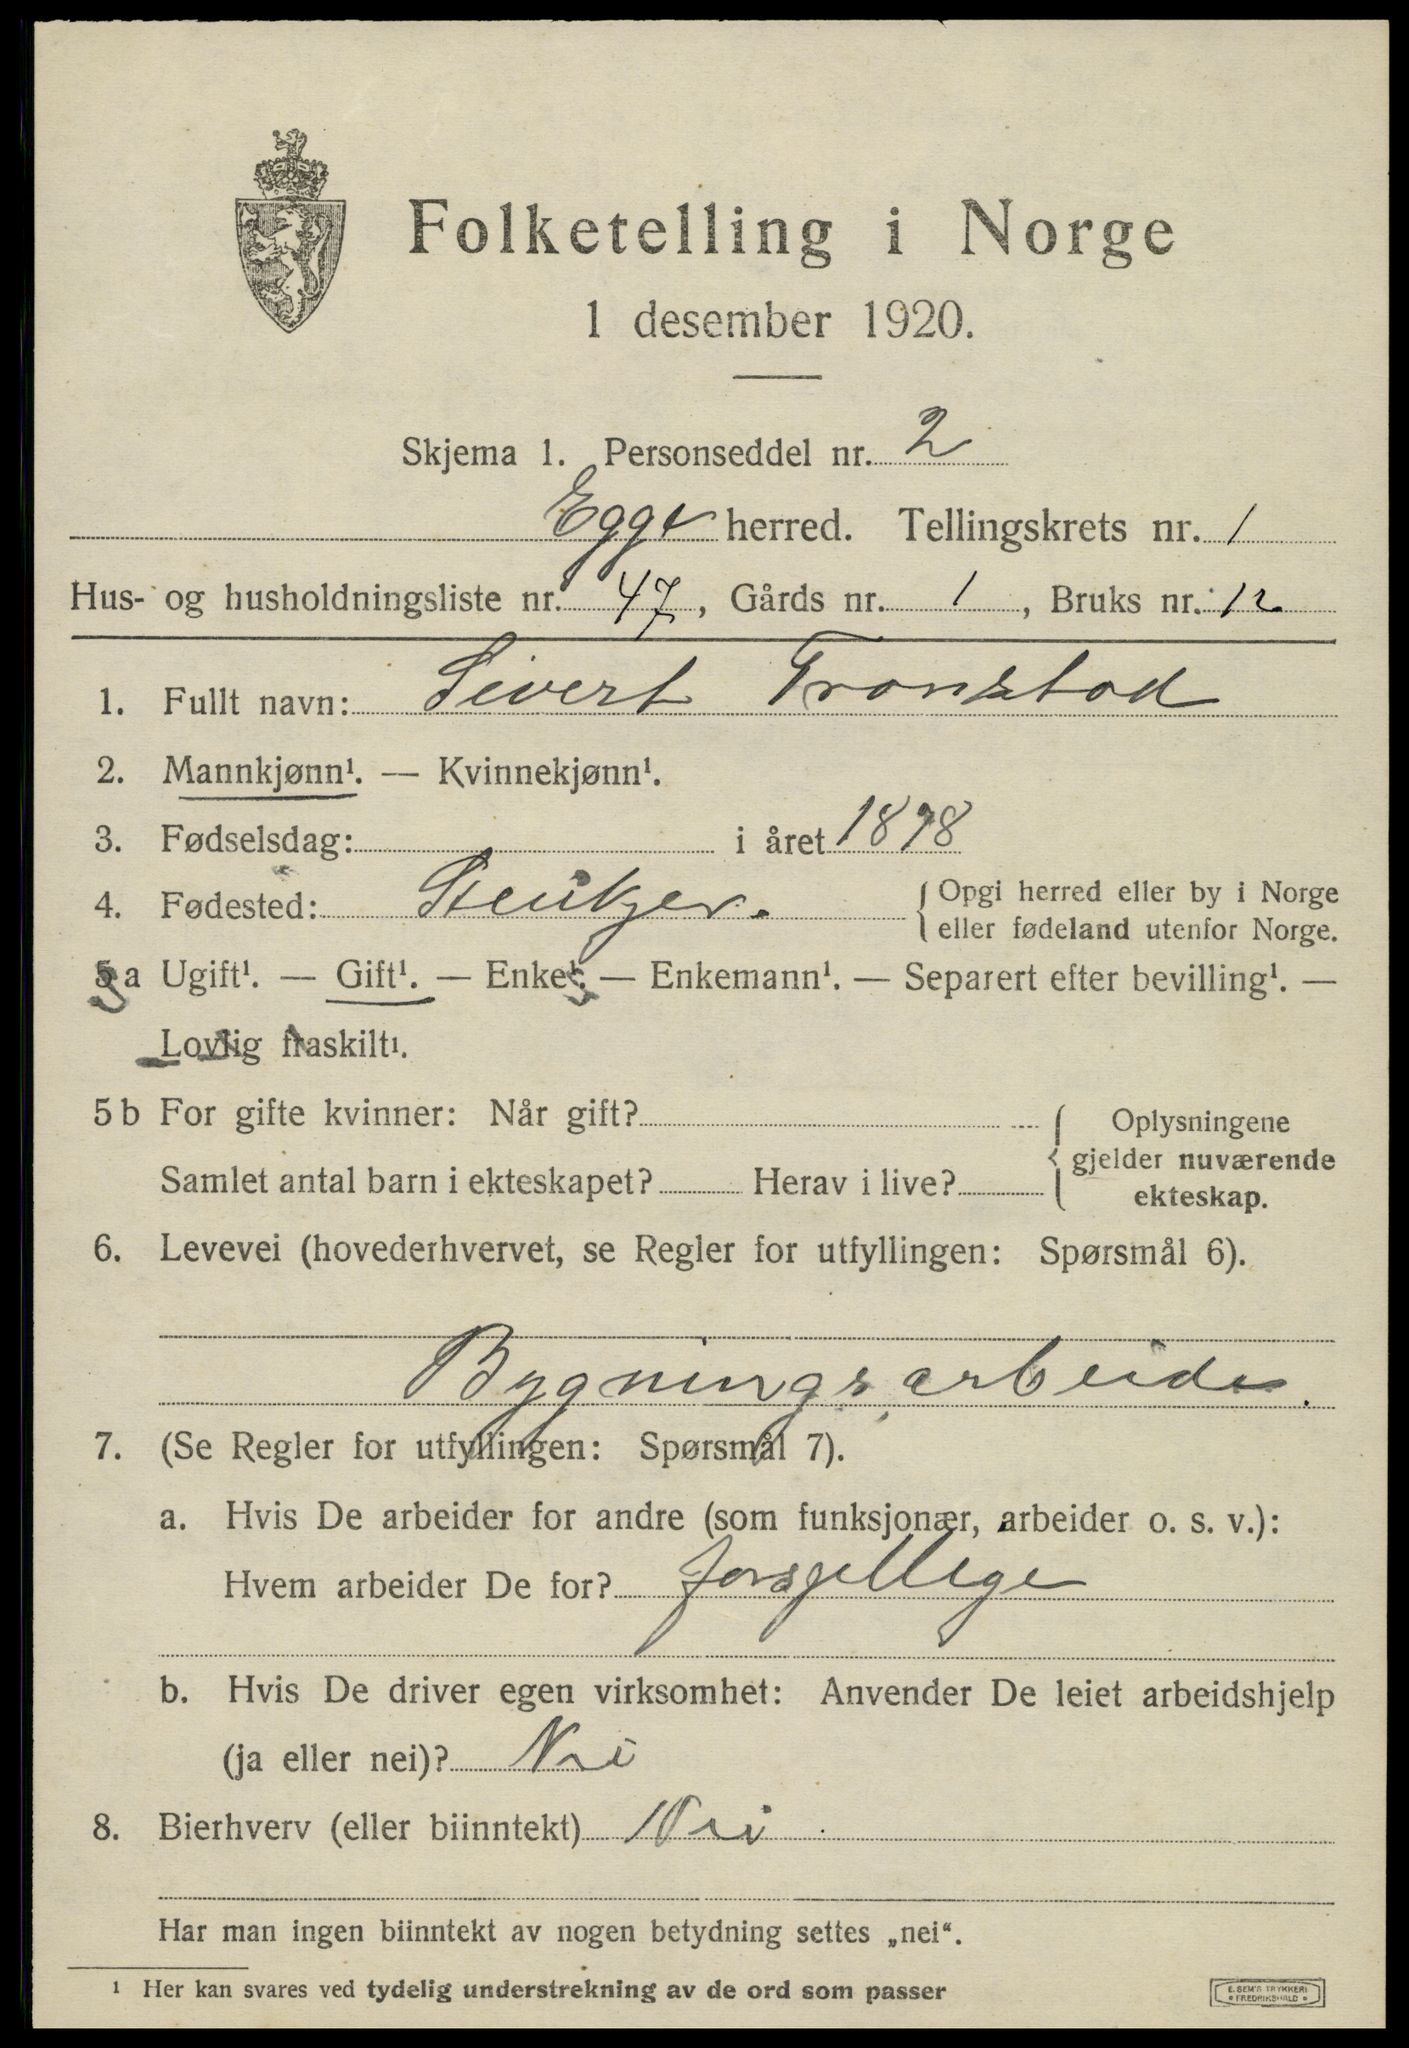 Folketelling i Norge
1 desember 1920.
Skjema 1. Personseddel nr. 2
Egge herred. Tellingskrets nr. 1
Hus- og husholdningsliste nr. 47, Gårds nr. 1, Bruks nr. 12
1. Fullt navn: Sivert Tronstad
2. Mannkjønn¹. — Kvinnekjønn¹.
3. Fødselsdag: i året 1898
4. Fødested: Steinkjer. { Opgi herred eller by i Norge
eller fødeland utenfor Norge.
5 a Ugift¹. — Gift¹. — Enke¹. — Enkemann¹. — Separert efter bevilling¹. —
Lovlig fraskilt¹.
5 b For gifte kvinner: Når gift? { Oplysningene
gjelder nuværende
Samlet antal barn i ekteskapet? Herav i live?
ekteskap.
6. Levevei (hovederhvervet, se Regler for utfyllingen: Spørsmål 6).
Bygningsarbeide.
7. (Se Regler for utfyllingen: Spørsmål 7).
a. Hvis De arbeider for andre (som funksjonær, arbeider o. s. v.):
Hvem arbeider De for? forsjellige
b. Hvis De driver egen virksomhet: Anvender De leiet arbeidshjelp
(ja eller nei)? Nei
8. Bierhverv (eller biinntekt) Nei
Har man ingen biinntekt av nogen betydning settes „nei“.
¹ Her kan svares ved tydelig understrekning av de ord som passer
E. SEM'S TRYKKERI
FREDRIKSHALD